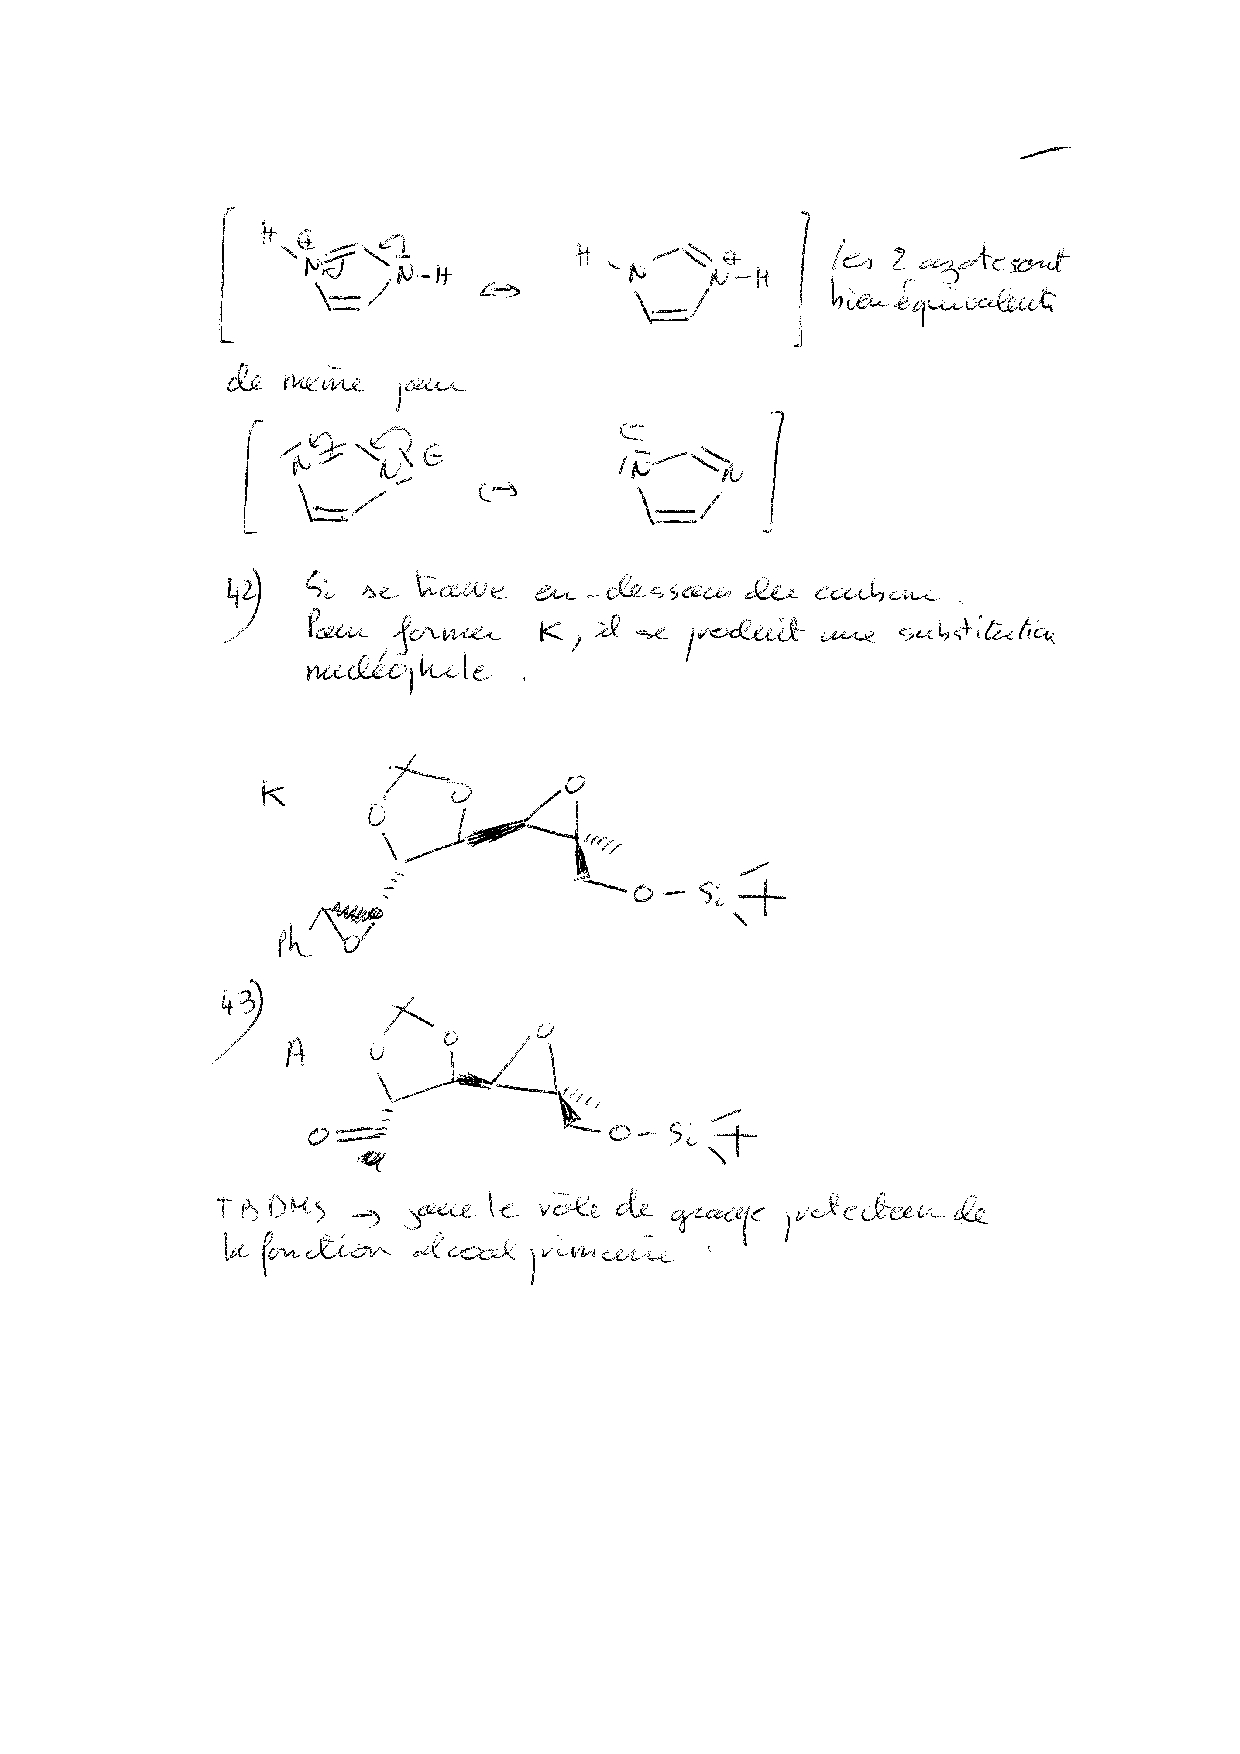 H ⊕ N N-H ↔ H N N-H ⊕ les 2 azote sont
bien équivalents
de même pour
N N ⊖ ↔ ⊖ N N
42) Si se trouve en-dessous du carbone.
Pour former K, il se produit une substitution
nucléophile.
K O O O
O - Si
Ph O
43)
A O O O
O O - Si
TBDMS → joue le rôle de groupe protecteur de
la fonction alcool primaire.